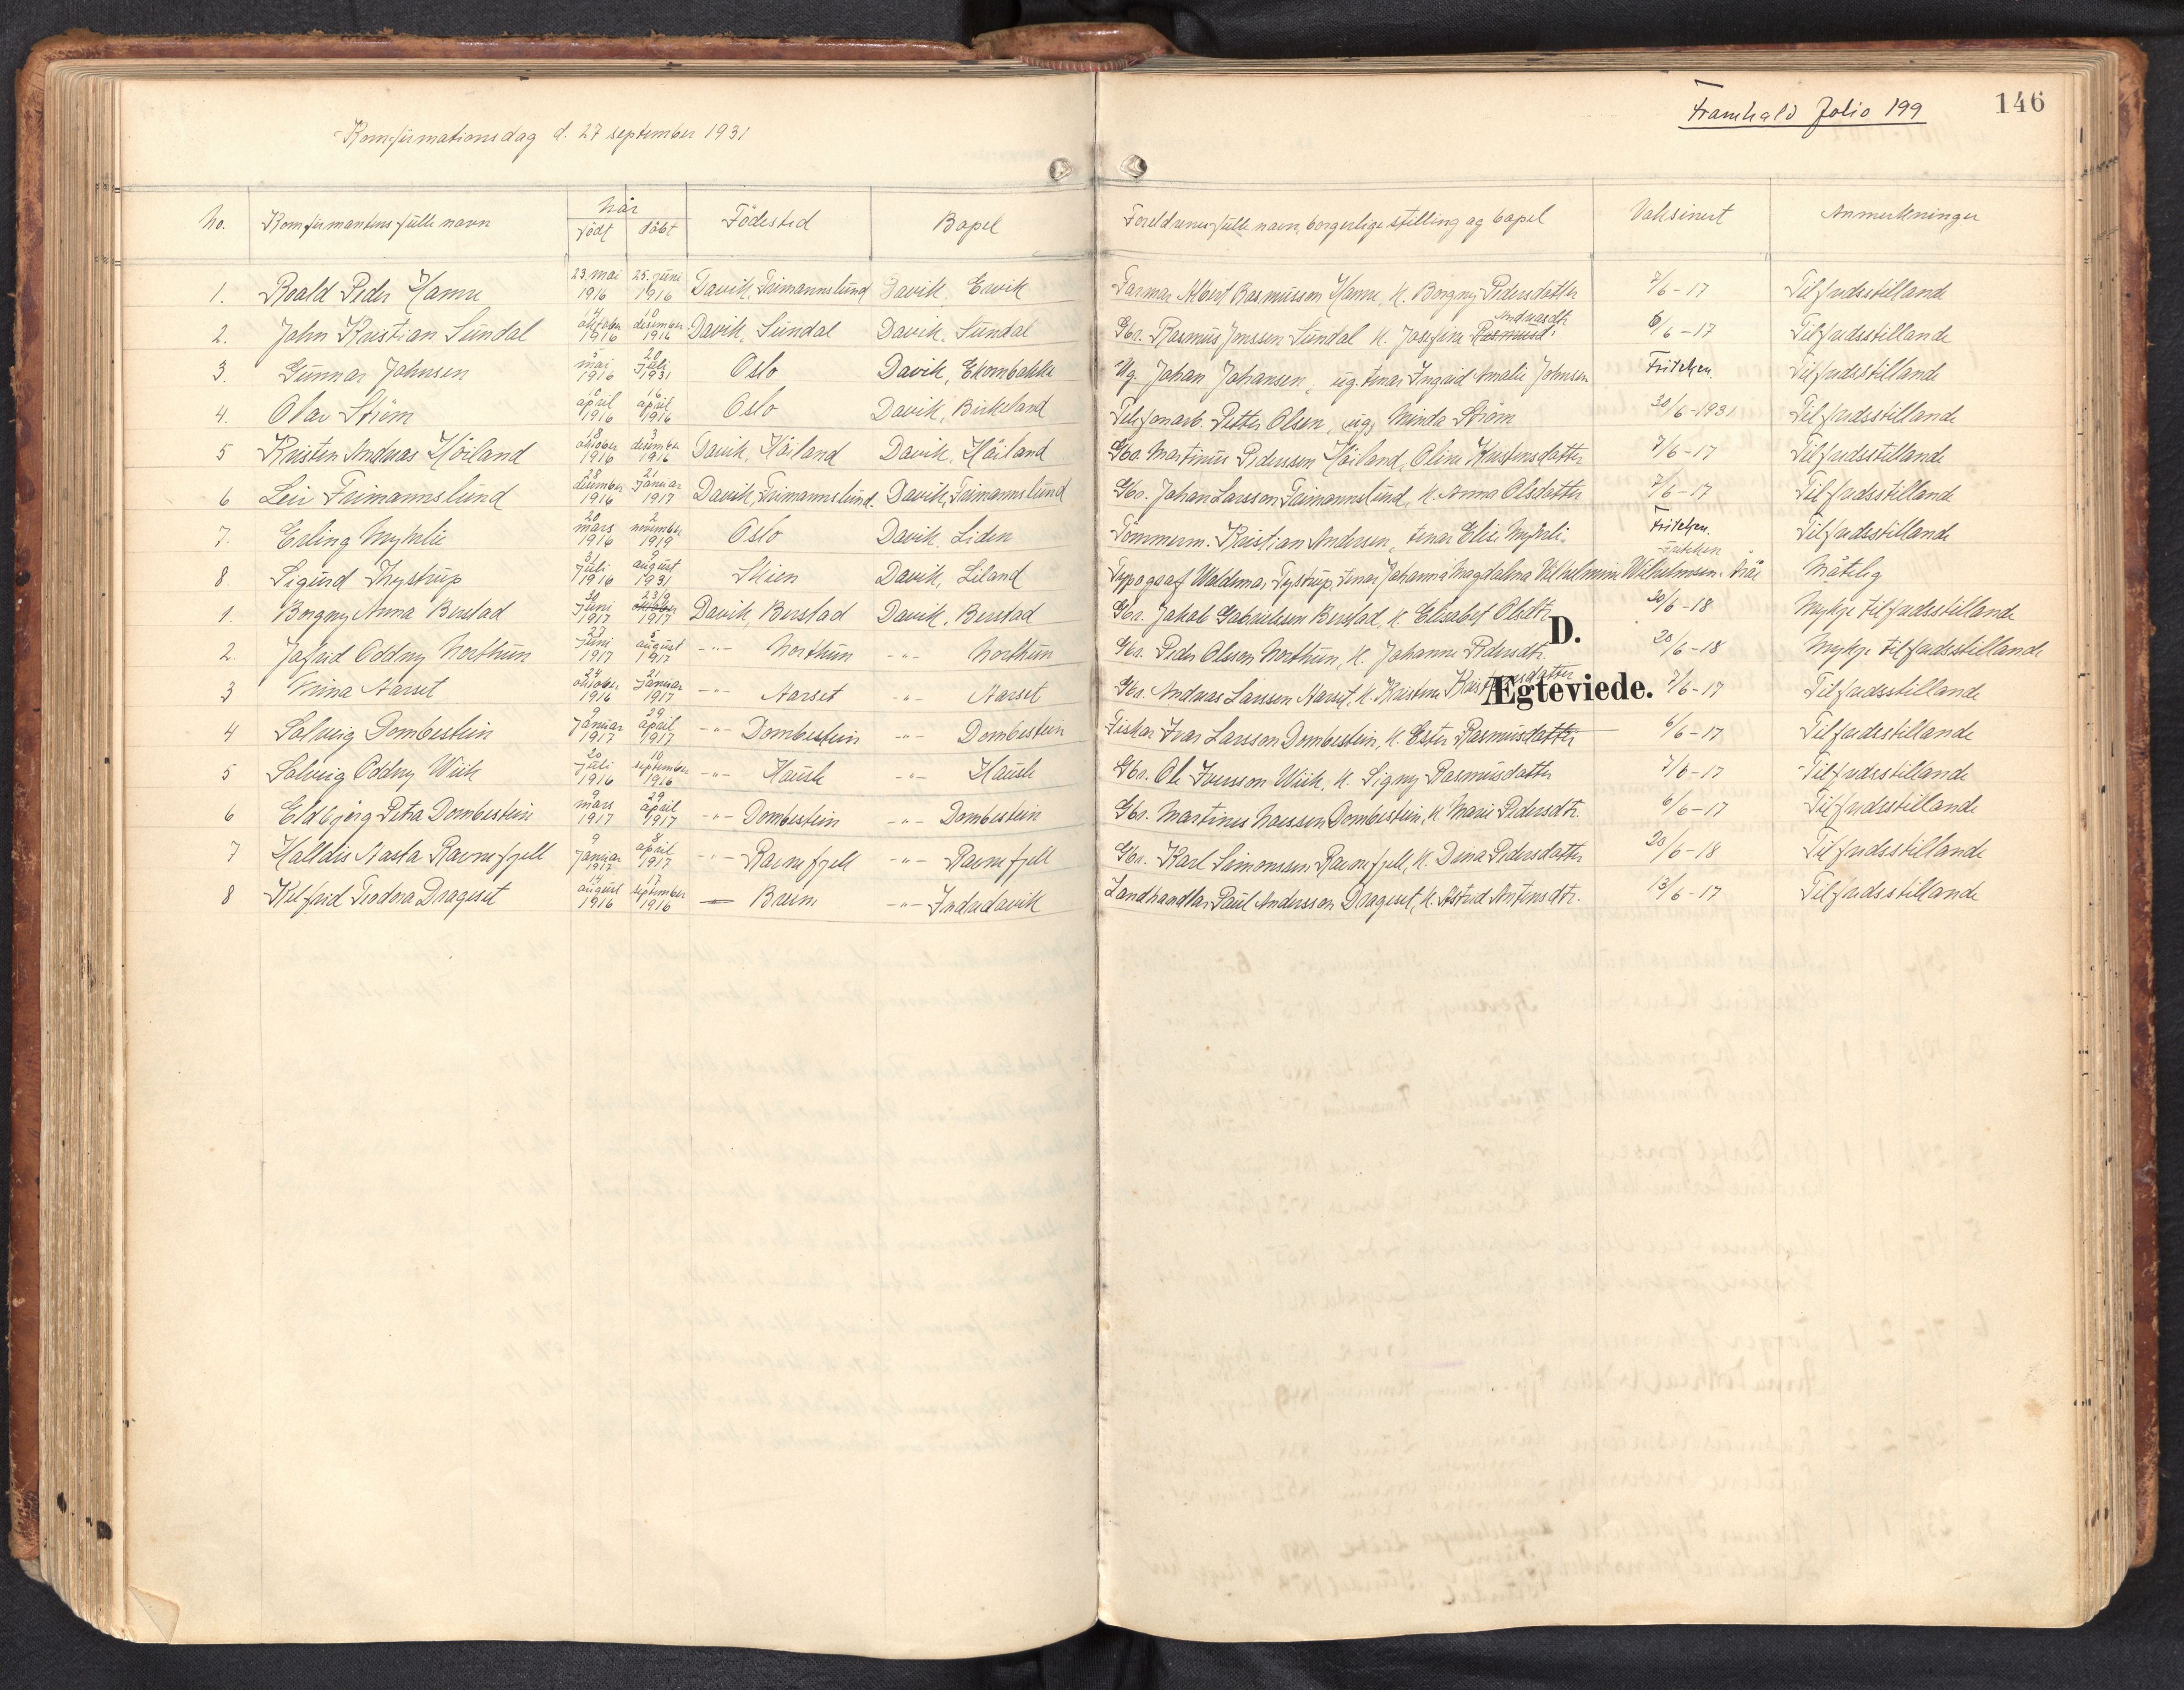 Framhald Folio 199
146
Konfirmationsdag d. 27 september 1931
No. Konfirmantens fulle navn Når Födt Döbt Födested Bopel Foreldrenes fulle navn, borgerlige stilling og bopel Vaksinert Anmerkninger
1. Roald Peder Hamre 23. mai 1916 25. juni 1916 Davik, Taimannslund Davik, Ervik Farmar Albert Rasmusson Hamre, K. Borgny Pedersdatter 7/6-17 Tilfredsstilland
2. John Kristian Sundal oktober 1916 10 desember 1916 Davik, Sundal Davik, Sundal Gbr. Rasmus Jonssen Sundal K. Josefine Andreasdtr. 6/6-17 Tilfredsstilland
3. Gunnar Johnsen 5 mai 1916 20 juli 1931 Oslo Davik, Ekornbakke Ug. Johan Johansen, ug. tenar Ingrid Amalie Johnsen Fritekjen. Tilfredsstilland
4. Olav Ström 10 april 1916 16 april 1916 Oslo Davik, Birkeland Telefonarb. Petter Olsen, ug. Minda Ström 30/6-1931 Tilfredsstillande
5 Kristen Andreas Höiland 18 oktober 1916 3 desember 1916 Davik, Höiland Davik, Höiland Gbr. Martinus Pederssen Höiland, Oline Kristensdatter 7/6-17 Tilfredsstillande
6 Leiv Taimannslund 28 desember 1916 21 januar 1917 Davik, Taimannslund. Davik, Taimannslund Gbr. Johan Larsson Taimannslund, K. Anna Olsdatter 7/6-17 Tilfredsstilland
7. Erling Myhrlie 20 mars 1916 2 november 1919 Oslo Davik, Liden Tömmerm. Kristian Andersen, tenar Elise Myhrli. Fritekjen. Tilfredsstilland
8. Sigurd Thystrup 31 juli 1916 9 august 1931 Skien Davik, Liland Typograf Waldemar Tystrup, tenar Johanna Magdalena Vilhelmine Wilhelmsen. Fritekjen Måtelig
1. Borgny Anna Berstad 30 juni 1917 23/9 oktober 1917 Davik, Berstad Davik, Berstad Gbr. Jakob Gabrielssen Berstad, K. Elisabet Olsdtr. 20/6-18 Mykje tilfredsstillande
D.
2. Jofrid Oddny Northun 23 juni 1917 5 august 1917 -"- Northun -"- Northun Gbr. Peder Olsson Northun, K. Johanne Pedersdtr. 20/6-18 Mykje tilfredsstillande
3 Mina Aarset 24 oktober 1916 21 januar 1917 -"- Aarset -"- Aarset Gbr. Andreas Larssen Aarset, K. Kristine 7/6-17 Tilfredsstilland
Ægteviede.
4 Solveig Dombestein 9 januar 1917 29. april 1917 -"- Dombestein -"- Dombestein Fiskar Ivar Larsson Dombestein, K. Ester Rasmusdatter 6/6-17 Tilfredsstillande
5 Solveig Oddny Wiik 20 juli 1916 10 september 1916 -"- Haus -"- Haus Gbr. Ole Iversson Wiik, K. Signy Rasmusdatter 7/6-17 Tilfredsstillande
6 Eldbjörg Petra Dombestein 9 mars 1917 29 april 1917 -"- Dombestein -"- Dombestein Gbr. Martinus Dombestein, K. Marie Pedersdtr. 6/6-17 Tilfredsstillande
7 Halldis Nasta Ravnefjell 9 januar 1917 8 april 1917 -"- Ravnefjell -"- Ravnefjell Gbr. Karl Simonssen Ravnefjell, K. Dina Pedersdatter 20/6-18 Tilfredsstillande
8 Kelfrid Teodora Drageset 14 august 1916 17 september 1916 — Brem -"- Indredavik Landhandlar Paul Andersson Drageset, K. Astrid Antonsdtr. 13/6-17 Tilfredsstillande